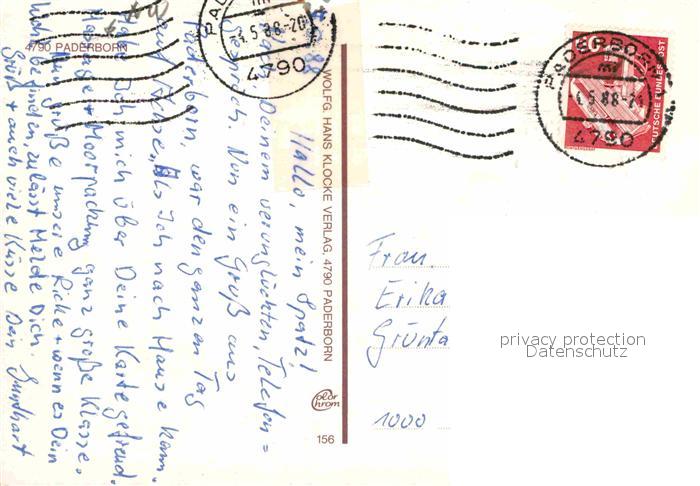 4790 PADERBORN
88
Hallo, mein Spatz!
Nach Deinem verunglückten, Telefon=
gespräch. Nun ein Gruß aus
Paderborn, war den ganzen Tag
auf Achse, Als Ich nach Hause kam.
Habe Ich mich über Deine Karte gefreut.
Massage + Moorpackung ganz große Klasse.
Nun grüße unsere Ricke + wenn es Dein
Wohlbefinden zulässt Melde Dich.
Gruß + auch viele Küsse Dein
WOLFG. HANS KLOCKE VERLAG, 4790 PADERBORN
color
chrom
156
PADERBORN
-4.5.88-20
4790
PADERBORN
-4.5.88-20
4790
DEUTSCHE BUNDESPOST
Frau
Erika
Grünta
1000
privacy protection
Datenschutz